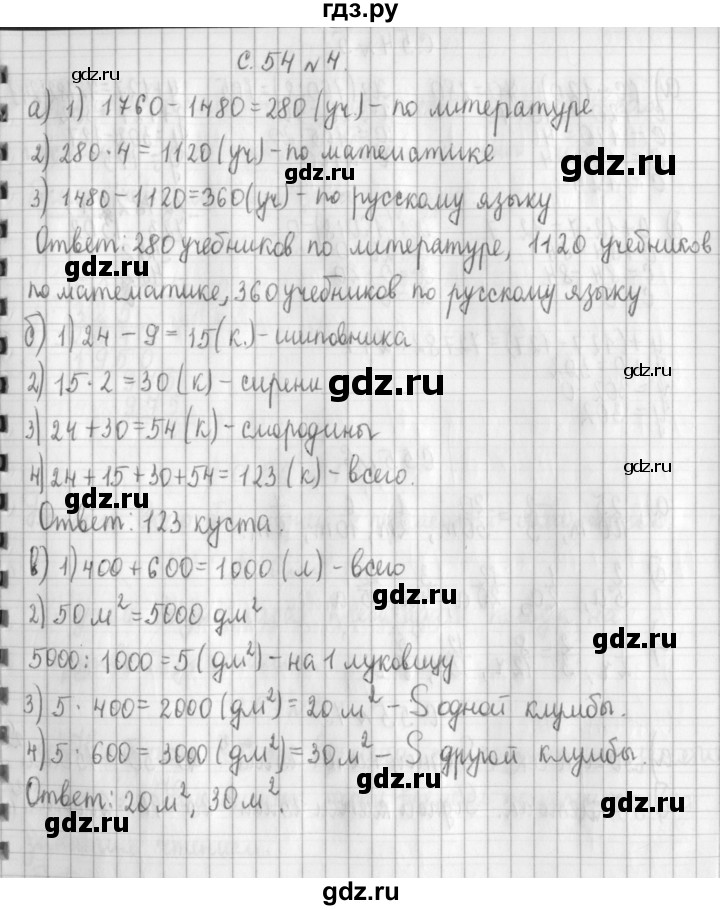 гдз.ру
с. 54 № 4.
gdz.ru
gdz.ru
а) 1) 1760 - 1480 = 280 (уч) - по литературе
2) 280 · 4 = 1120 (уч) - по математике
gdz.ru
gdz.ru
3) 1480 - 1120 = 360 (уч) - по русскому языку
Ответ: 280 учебников по литературе, 1120 учебников
gdz.ru
по математике, 360 учебников по русскому языку
б) 1) 24 - 9 = 15 (к.) - шиповника
gdz.ru
2) 15 · 2 = 30 (к) - сирени
gdz.ru
3) 24 + 30 = 54 (к) - смородины
gdz.ru
4) 24 + 15 + 30 + 54 = 123 (к) - всего.
gdz.ru
Ответ: 123 куста.
в) 1) 400 + 600 = 1000 (л) - всего
gdz.ru
2) 50 м² = 5000 дм²
gdz.ru
5000 : 1000 = 5 (дм²) - на 1 луковицу
3) 5 · 400 = 2000 (дм²) = 20 м² - S одной клумбы.
4) 5 · 600 = 3000 (дм²) = 30 м² - S другой клумбы.
Ответ: 20 м², 30 м²
gdz.ru
gdz.ru
gdz.ru